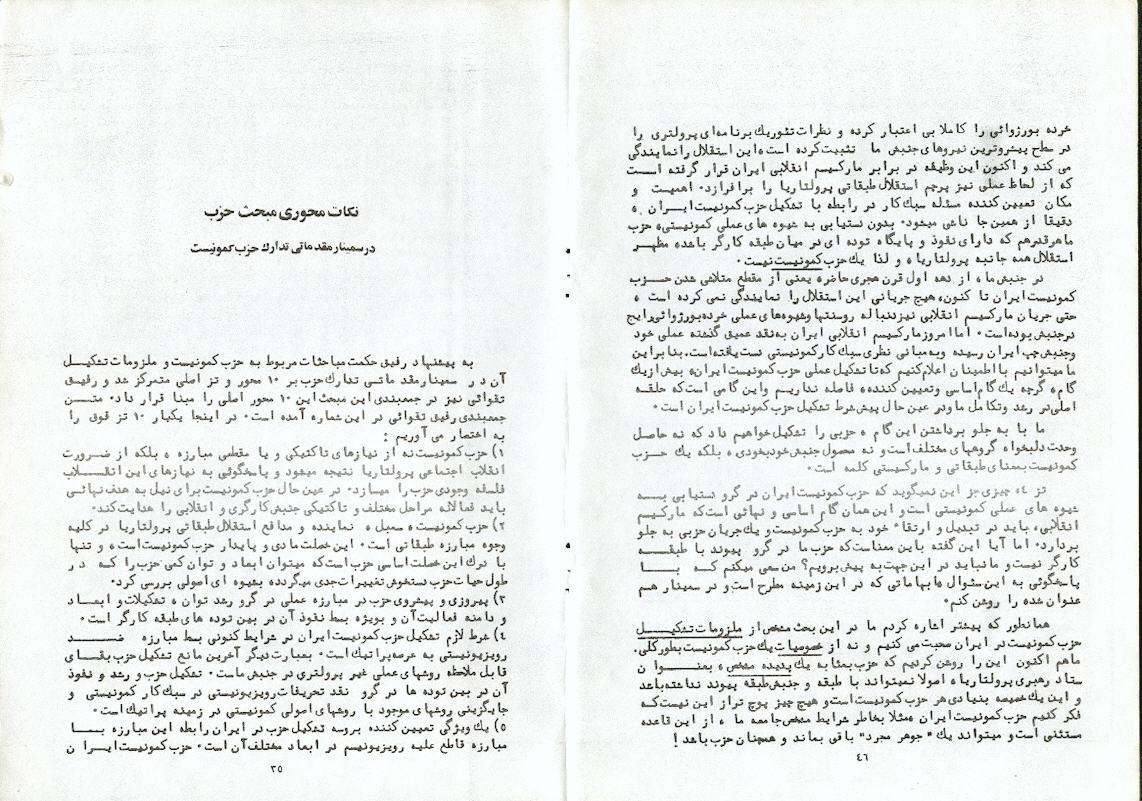 خرده بورژوائی را کاملا بی اعتبار کرده و نظرات تئوریك برنامه‌ای پرولتری را
در سطح پیشروترین نیروهای جنبش ما تثبیت کرده است، این استقلال را نمایندگی
می کند و اکنون این وظیفه در برابر مارکسیسم انقلابی ایران قرار گرفته اســت
که از لحاظ عملی نیز پرچم استقلال طبقاتی پرولتاریا را برافرازد. اهمیت و
مکان تعیین کننده مسئله سبك کار در رابطه با تشکیل حزب کمونیست ایــران ،
دقیقا از همین جا ناشی میشود. بدون دستیابی به شیوه های عملی کمونیستی، حزب
ما هرقدر هم که دارای نفوذ و پایگاه توده ای در میان طبقه کارگر باشد، مظهــر
استقلال همه جانبه پرولتاریا، و لذا یك حزب کمونیست نیست.
در جنبش ما ، از دهه اول قرن هجری حاضر، یعنی از مقطع متلاشی شدن حــزب
کمونیست ایران تا کنون، هیچ جریانی این استقلال را نمایندگی نمی کرده است ،
حتی جریان مارکسیسم انقلابی نیز دنباله رو سنتها و شیوه‌های عملی خرده بورژوائی رایج
در جنبش بوده است. اما امروز مارکسیسم انقلابی ایران به نقد عمیق گذشته عملی خود
و جنبش چپ ایران رسیده و به مبانی نظری سبك کار کمونیستی دست یافته است. بنابراین
ما میتوانیم با اطمینان اعلام کنیم که تا تشکیل عملی حزب کمونیست ایران، بیش از یك
گام، گرچه یك گام اساسی و تعیین کننده، فاصله نداریم و این گامی است که حلقــه
اصلی در رشد و تکامل ما و در عین حال پیش شرط تشکیل حزب کمونیست ایران است.
ما با به جلو برداشتن این گام ، حزبی را تشکیل خواهیم داد که نه حاصل
وحدت دلبخواه گروههای مختلف است و نه محصول جنبش خودبخودی، بلکه یك حــزب
کمونیست بمعنای طبقاتی و مارکسیستی کلمه است.
تز ٤، چیزی جز این نمیگوید که حزب کمونیست ایران در گرو دستیابی بــه
شیوه های عملی کمونیستی است و این همان گام اساسی و نهائی است که مارکسیسم
انقلابی، باید در تبدیل و ارتقاء خود به حزب کمونیست و یك جریان حزبی به جلو
بردارد. اما آیا این گفته باین معناست که حزب ما در گرو پیوند با طبقــه
کارگر نیست و ما نباید در این جهت به پیش برویم؟ من سعی میکنم کــه بــا
پاسخگوئی به این سئوال، ابهاماتی که در این زمینه مطرح است و در سمینار هم
عنوان شده را روشن کنم.
همانطور که پیشتر اشاره کردم ما در این بحث مشخص از ملزومات تشکیــل
حزب کمونیست در ایران صحبت می کنیم و نه از خصوصیات یك حزب کمونیست بطور کلی.
ما هم اکنون این را روشن کردیم که حزب بمثابه یك پدیده مشخص، بعنــوان
ستاد رهبری پرولتاریا، اصولا نمیتواند با طبقه و جنبش طبقه پیوند نداشته باشد
و این یك خصیصه بنیادی هر حزب کمونیست است و هیچ چیز پوچ تر از این نیست که
فکر کنیم حزب کمونیست ایران مثلا بخاطر شرایط مشخص جامعه ما ، از این قاعده
مستثنی است و میتواند یك "جوهر مجرد" باقی بماند و همچنان حزب باشد!
٤٦
نکات محوری مبحث حزب
در سمینار مقدماتی تدارك حزب کمونیست
به پیشنهاد رفیق حکمت مباحثات مربوط به حزب کمونیست و ملزومات تشکیــل
آن در سمینار مقدماتی تدارك حزب بر ١٠ محور و تز اصلی متمرکز شد و رفیــق
تقوائی نیز در جمعبندی این مبحث این ١٠ محور اصلی را مبنا قرار داد. متــن
جمعبندی رفیق تقوائی در این شماره آمده است. در اینجا یکبار ١٠ تز فوق را
به اختصار می آوریم :
١) حزب کمونیست نه از نیازهای تاکتیکی و یا مقطعی مبارزه ، بلکه از ضــرورت
انقلاب اجتماعی پرولتاریا نتیجه میشود و پاسخگوئی به نیازهای این انقــلاب
فلسفه وجودی حزب را میسازد. در عین حال حزب کمونیست برای نیل به هدف نهائــی
باید فعالانه مراحل مختلف و تاکتیکی جنبش کارگری و انقلابی را هدایت کند.
٢) حزب کمونیست ، سمبل ، نماینده و مدافع استقلال طبقاتی پرولتاریا در کلیه
وجوه مبارزه طبقاتی است. این خصلت مادی و پایدار حزب کمونیست است ، و تنها
با درك این خصلت اساسی حزب است که میتوان ابعاد و توان کمی حزب را کــه در
طول حیات حزب دستخوش تغییرات جدی میگردد، بشیوه ای اصولی بررسی کرد.
٣) پیروزی و پیشروی حزب در مبارزه عملی در گرو رشد توان ، تشکیلات و ابعــاد
و دامنه فعالیت آن و بویژه بسط نفوذ آن در بین توده های طبقه کارگر است.
٤) شرط لازم تشکیل حزب کمونیست ایران در شرایط کنونی بسط مبارزه ضــد
رویزیونیستی به عرصه پراتیك است. بعبارت دیگر آخرین مانع تشکیل حزب بقــای
قابل ملاحظه روشهای عملی غیر پرولتری در جنبش ماست. تشکیل حزب و رشد و نفوذ
آن در بین توده ها در گرو نقد تحریفات رویزیونیستی در سبك کار کمونیستی و
جایگزینی روشهای موجود با روشهای اصولی کمونیستی در زمینه پراتیك است.
٥) یك ویژگی تعیین کننده پروسه تشکیل حزب در ایران رابطه این مبارزه بــا
مبارزه قاطع علیه رویزیونیسم در ابعاد مختلف آن است. حزب کمونیست ایــران
٣٥